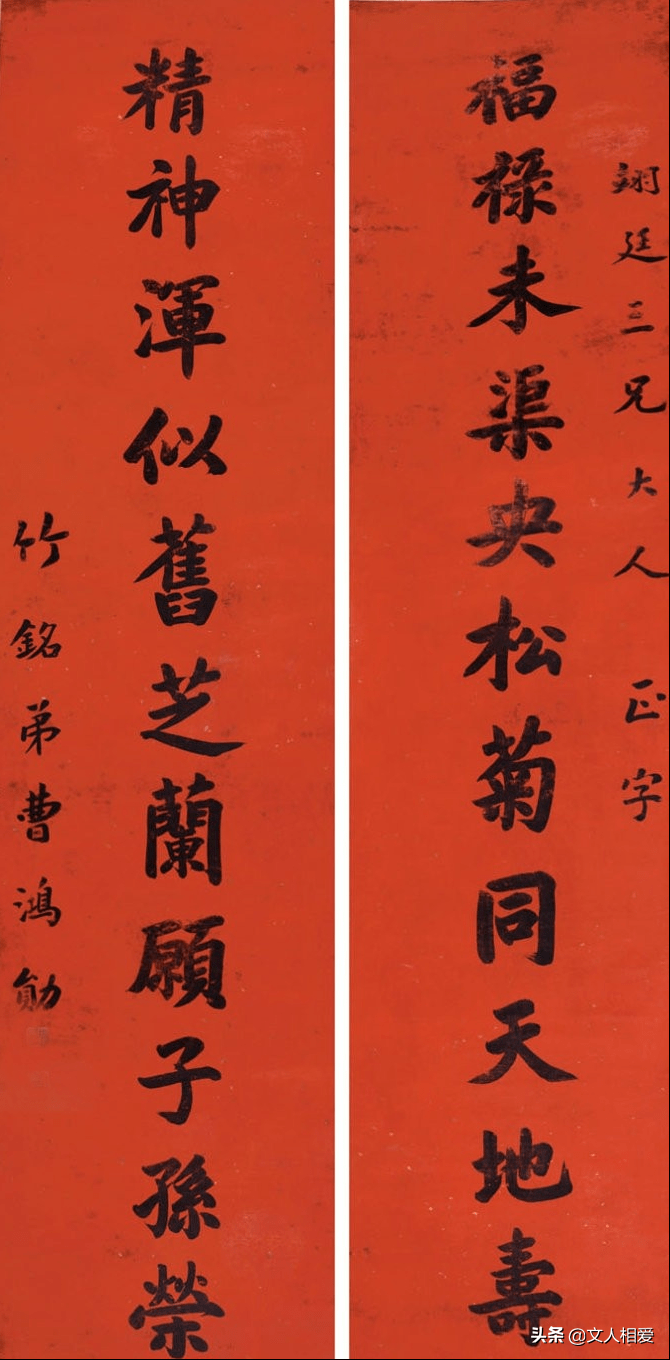 翊廷三兄大人 正字
福祿未渠央松菊同天地壽
精神渾似舊芝蘭願子孫榮
竹銘弟曹鴻勛
头条 @文人相爱